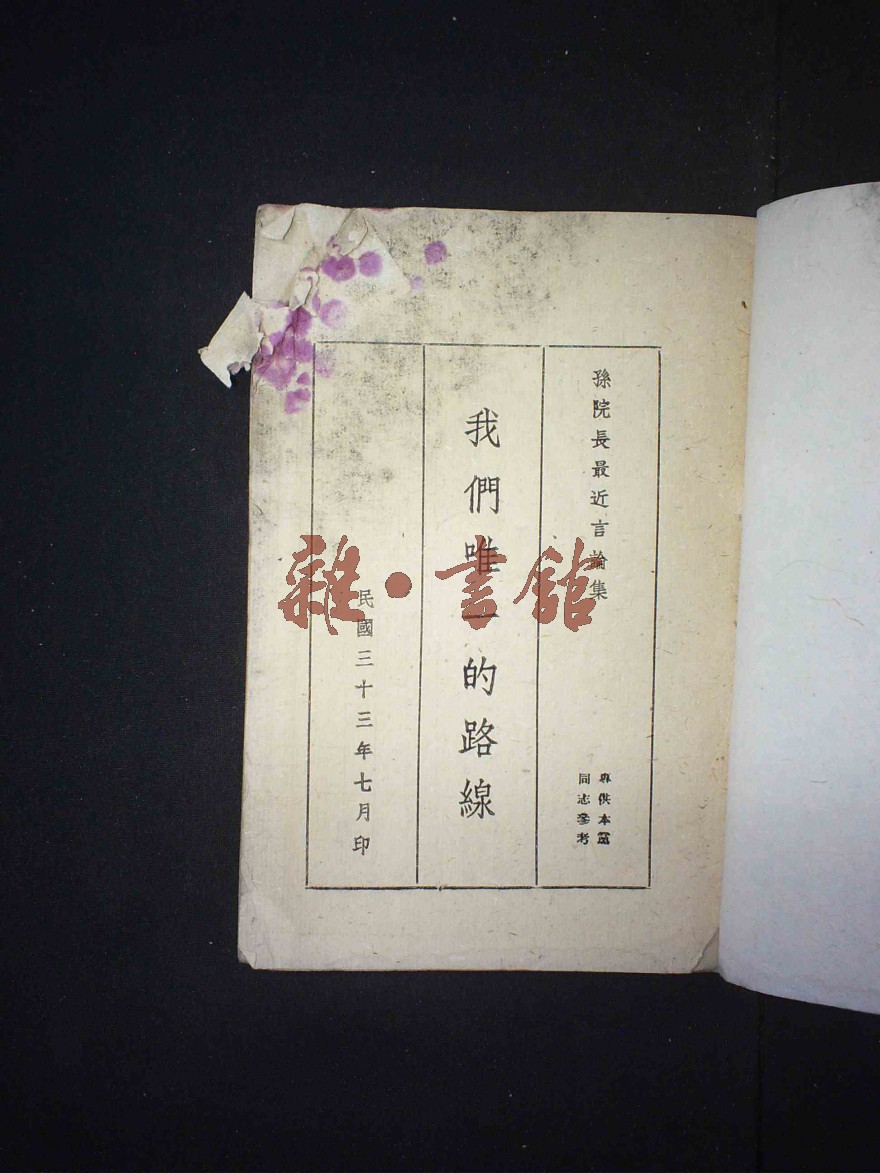 孫院長最近言論集
專供本黨
同志參考
我們唯一的路線
民國三十三年七月印
雜·書館